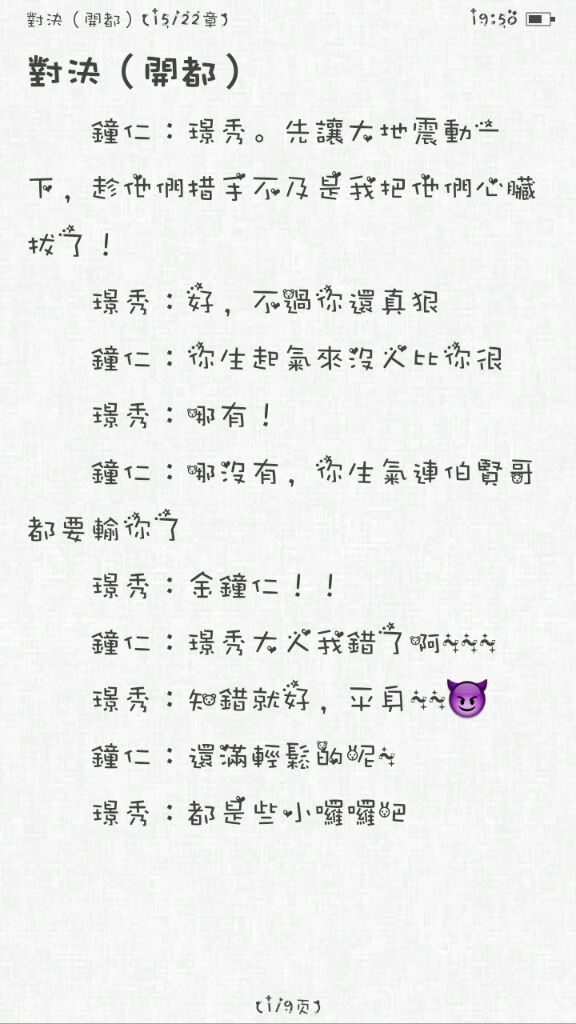 對決（開都）(15/22章)
19:50
對決（開都）
鐘仁：璟秀。先讓大地震動一
下，趁他們措手不及是我把他們心臟
拔了！
璟秀：好，不過你還真狠
鐘仁：你生起氣來沒人比你很
璟秀：哪有！
鐘仁：哪沒有，你生氣連伯賢哥
都要輸你了
璟秀：金鐘仁！！
鐘仁：璟秀大人我錯了啊~~~
璟秀：知錯就好，平身~~😈
鐘仁：還滿輕鬆的呢~
璟秀：都是些小囉囉吧
(1/9页)